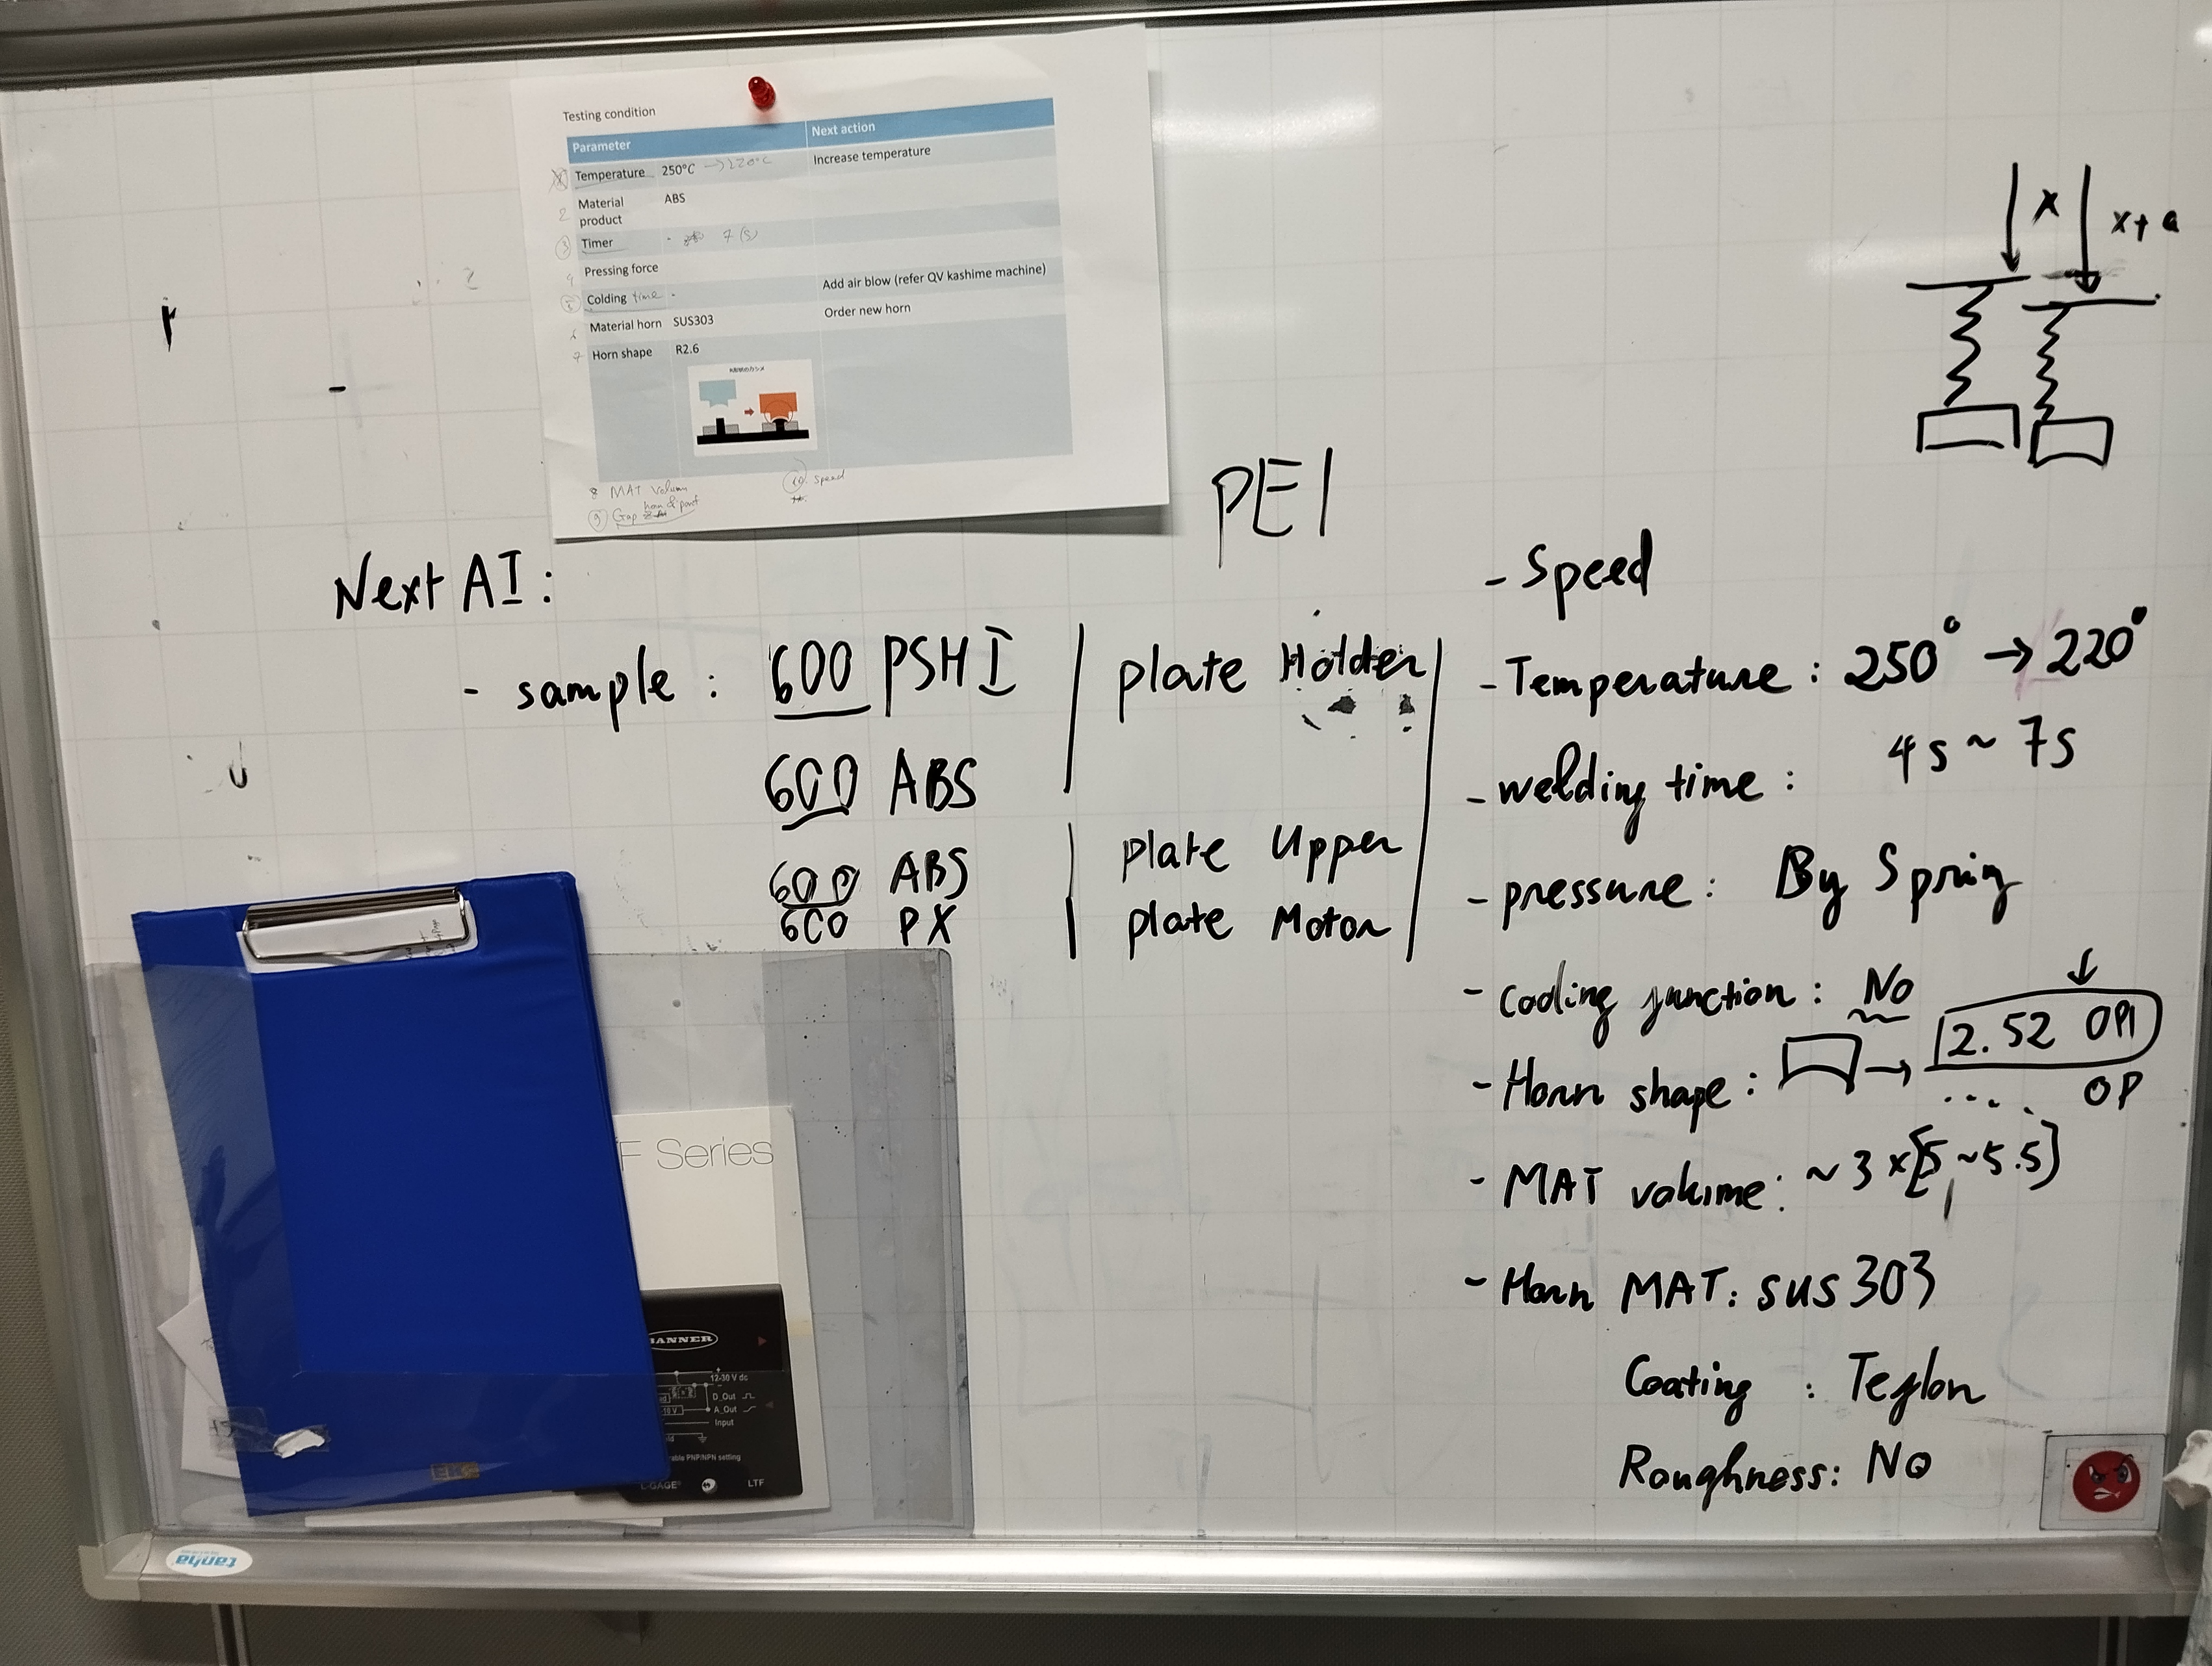 Testing condition
Parameter Next action
Temperature 250°C → 220°C Increase temperature
2 Material product ABS
3 Timer - 7 (s)
4 Pressing force
5 Colding time - Add air blow (refer QV kashime machine)
6 Material horn SUS303 Order new horn
7 Horn shape R2.6
8 MAT Volum
9 Gap horn & part
10. Speed
x
x+a
PEI
Next AI:
- sample : 600 PSHI / plate Holder
600 ABS
600 ABS | plate Upper
600 PX | plate Motor
- Speed
- Temperature : 250° → 220°
- welding time : 4s ~ 7s
- pressure : By Spring
- Cooling junction : No
- Horn shape : → 2.52 OP1
.... OP
- MAT volume : ~ 3 x [5 ~ 5.5]
- Horn MAT : SUS 303
Coating : Teflon
Roughness : NO
F Series
BANNER
12-30 V dc
D_Out
A_Out
Input
PNP/NPN setting
L-GAGE® LTF
EKE
tanha